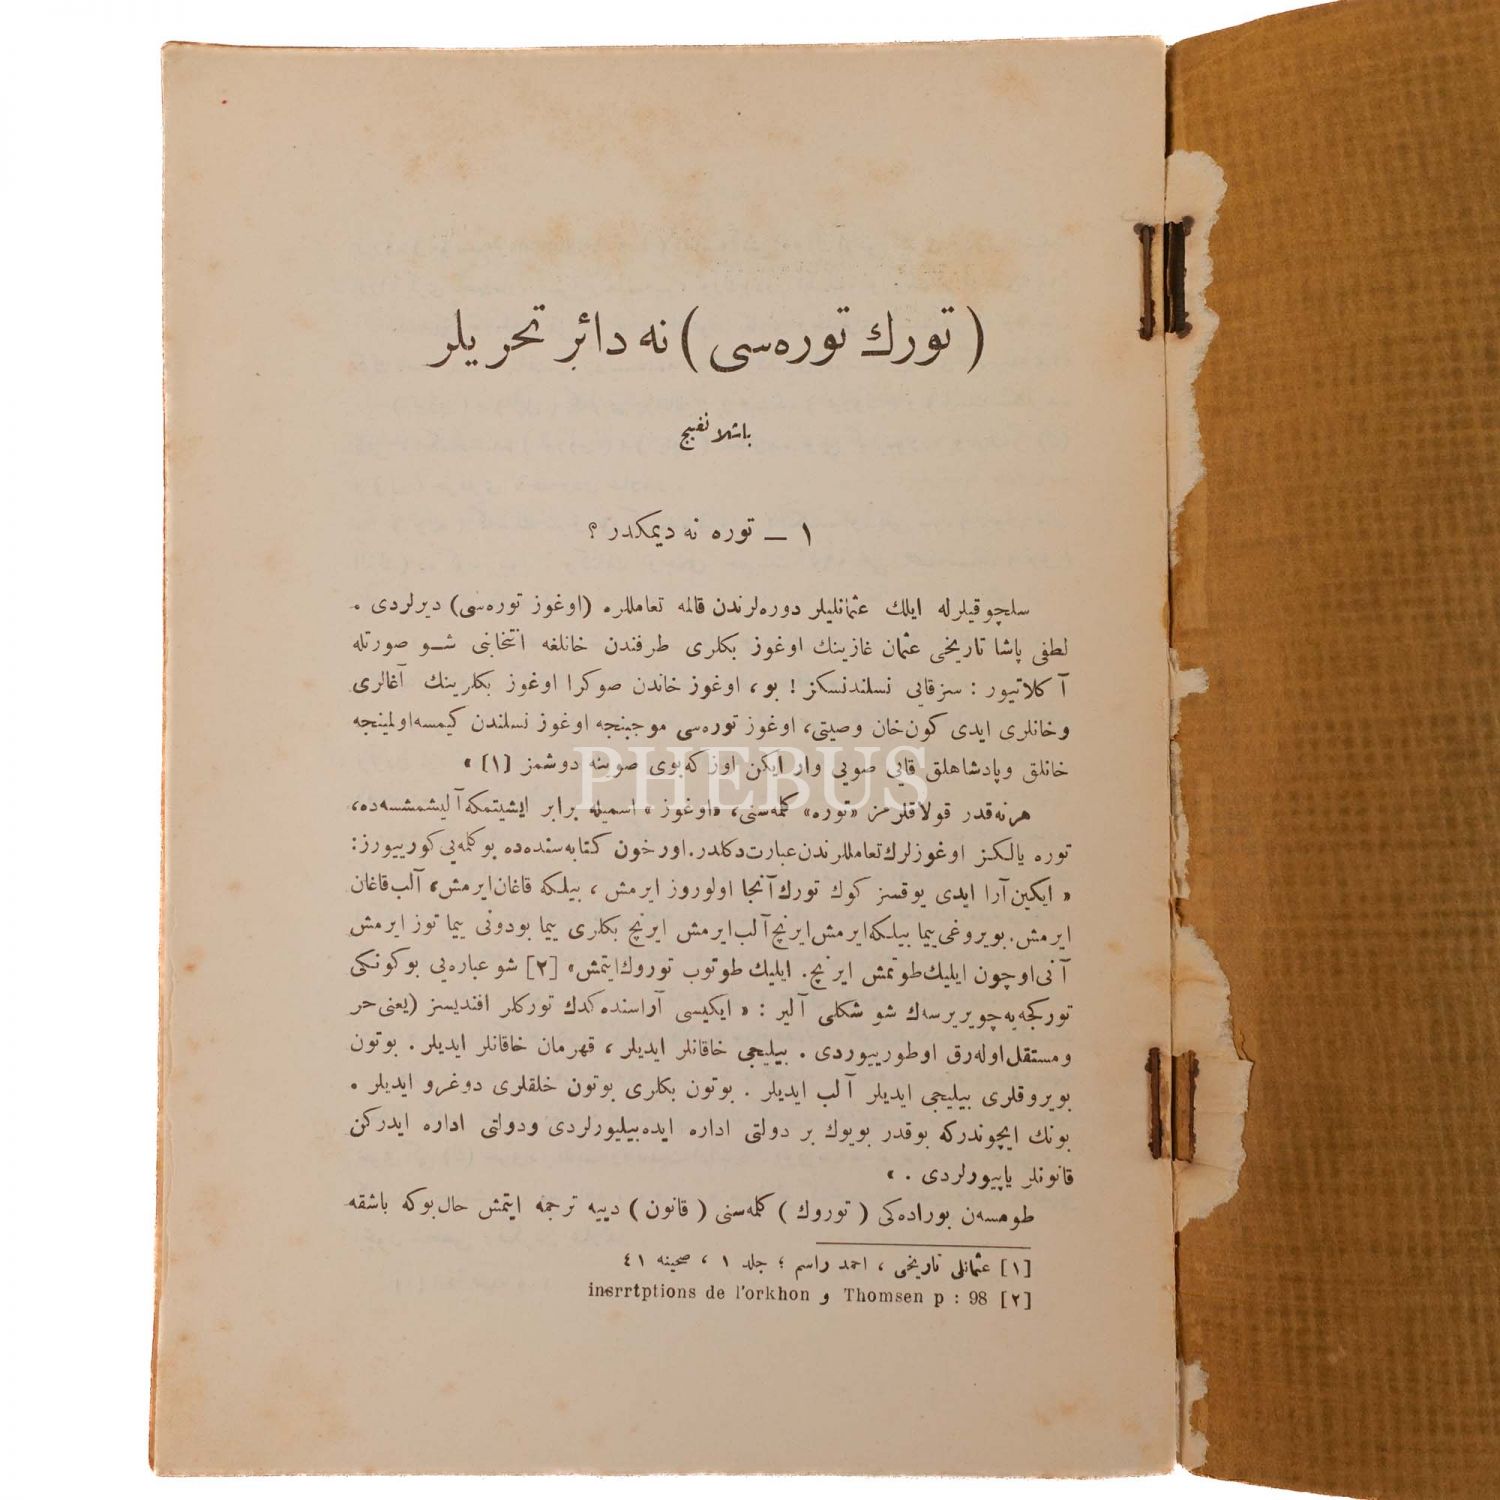 ( تورك توره‌سی ) نه دائر تحریلر
باشلانغیج
١ — توره نه دیمكدر ؟
سلچوقیلرله ایلك عثمانلیلر دوره‌لرندن قالمه تعامللره (اوغوز توره‌سی) دیرلردی .
لطفی پاشا تاریخی عثمان غازینك اوغوز بكلری طرفندن خانلغه انتخابنی شو صورتله
آكلاتیور : سزقایی نسلندنسكز ! بو، اوغوز خاندن صوكرا اوغوز بكلرینك آغالری
وخانلری ایدی كون‌خان وصیتی، اوغوز توره‌سی موجبنجه اوغوز نسلندن كیمسه‌اولمینجه
خانلق وپادشاهلق قایی صویی وار ایكن اوزكه‌بوی صوینه دوشمز [١] »
PHEBUS
هرنه‌قدر قولاقلرمز «توره» كلمه‌سنی، «اوغوز » اسمیله برابر ایشیتمكه‌آلیشمشسه‌ده،
توره یالكز اوغوزلرك‌تعامللرندن‌عبارت‌دكلدر.اورخون كتابه‌سنده‌ده بوكلمه‌یی‌كورییورز:
« ایكین‌آرا ایدی یوقسز كوك تورك‌آنجا اولوروز ایرمش ، بیلكه قاغان‌ایرمش، آلب‌قاغان
ایرمش. بویروغی‌ییما بیلكه‌ایرمش‌ایرنچ‌آلب‌ایرمش ایرنچ بكلری ییما بودونی ییما توز ایرمش
آنی‌اوچون ایلیك‌طوتمش ایرنچ. ایلیك طوتوب توروك‌ایتمش» [٢] شو عباره‌یی بوكونكی
توركجه‌یه‌چویریرسه‌ك شو شكلی آلیر : « ایكیسی آراسنده‌كدك توركلر افندیسز (یعنی‌حر
ومستقل‌اوله‌رق اوطورییوردی . بیلیجی خاقانلر ایدیلر ، قهرمان خاقانلر ایدیلر . بوتون
بویروقلری بیلیجی ایدیلر آلب ایدیلر . بوتون بكلری بوتون خلقلری دوغرو ایدیلر .
بونك ایچوندركه بوقدر بویوك بر دولتی اداره ایده‌بیلیورلردی ودولتی اداره ایدركن
قانونلر یاپیورلردی . »
طومسه‌ن بوراده‌كی ( توروك ) كلمه‌سنی ( قانون ) دییه ترجمه ایتمش حال‌بوكه باشقه
[١] عثمانلی تاریخی ، احمد راسم ؛ جلد ١ ، صحیفه ٤١
[٢] inerrtptions de l'orkhon و Thomsen p : 98